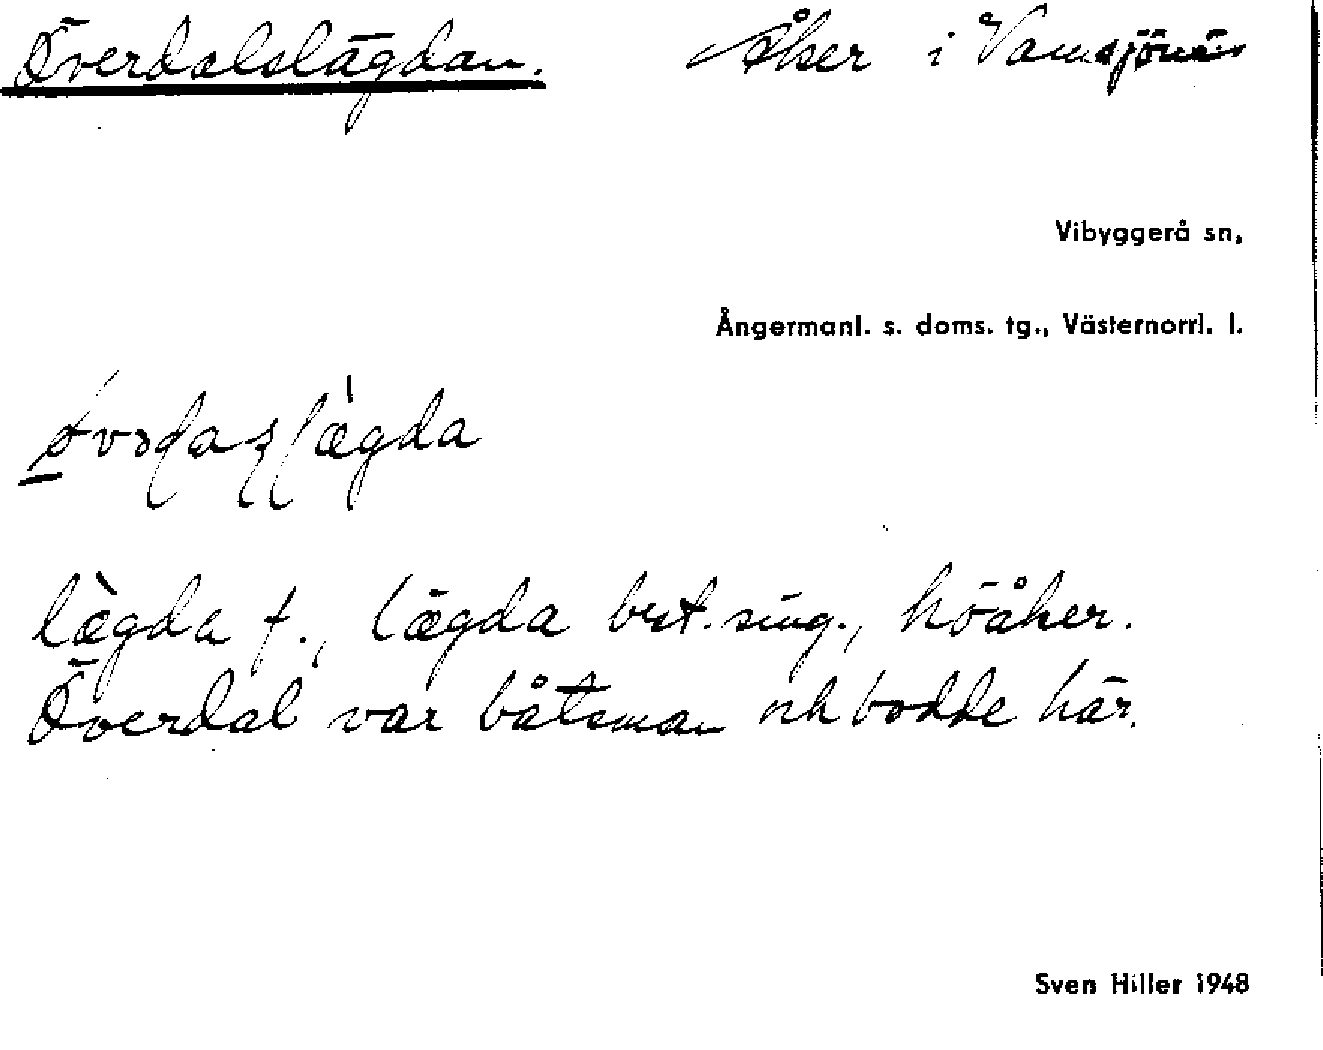 Överdalslägdan. Åker i Vamsjönäs
Vibyggerå sn,
Ångermanl. s. doms. tg., Västernorrl. l.
lægda f., lægda best. sing., höåker.
Överdal var båtsman och bodde här.
Sven Hiller 1948